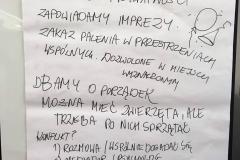 ZAPOWIADAMY IMPREZY.
ZAKAZ PALENIA W PRZESTRZENIACH
WSPÓLNYCH. DOZWOLONE W MIEJSCU
WYZNACZONYM
DBAMY O PORZĄDEK
MOŻNA MIEĆ ZWIERZĘTA, ALE
TRZEBA PO NICH SPRZĄTAĆ
KONFLIKT?
1) ROZMOWA / WSPÓLNIE DOGADAĆ SIĘ